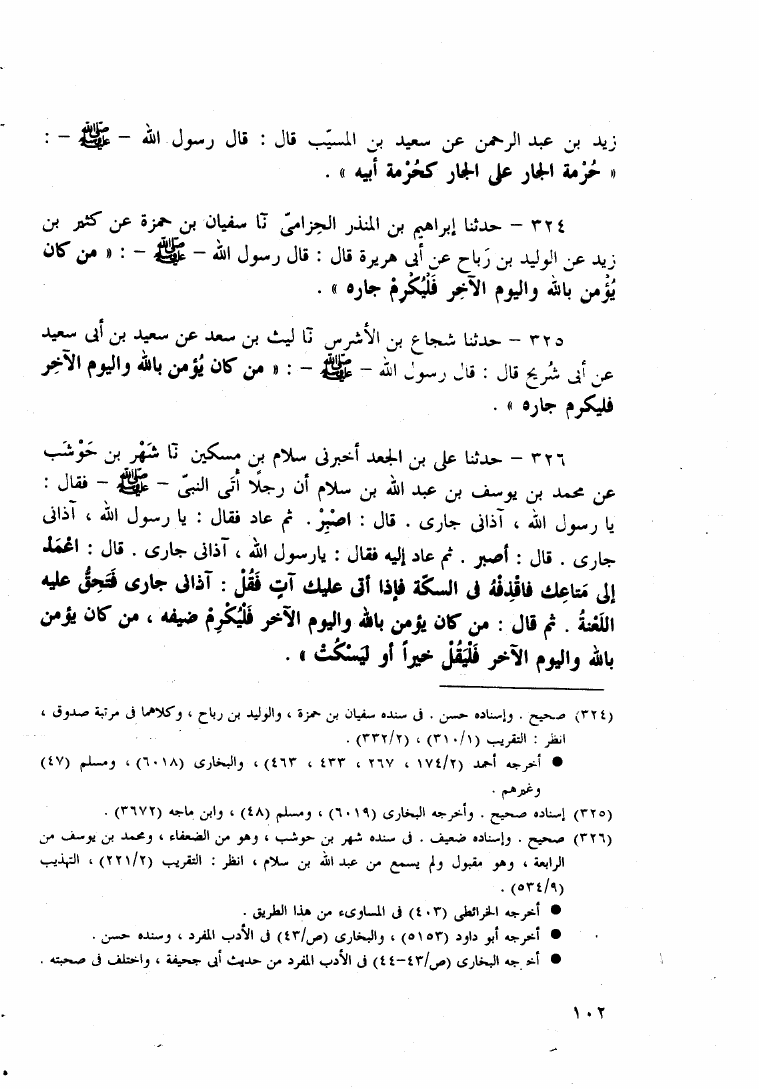 زيد بن عبد الرحمن عن سعيد بن المسيّب قال : قال رسول الله – ﷺ – :
« حُرْمة الجار على الجار كحُرْمة أبيه » .
٣٢٤ – حدثنا إبراهيم بن المنذر الحِزاميّ نَا سفيان بن حمزة عن كثير بن
زيد عن الوليد بن رَباح عن أبى هريرة قال : قال رسول الله – ﷺ – : « من كان
يُؤْمن بالله واليوم الآخر فَلْيُكْرِمْ جاره » .
٣٢٥ – حدثنا شجاع بن الأشرس نَا ليث بن سعد عن سعيد بن أبى سعيد
عن أبى شُريح قال : قال رسول الله – ﷺ – : « من كان يُؤمن بالله واليوم الآخِر
فليكرم جاره » .
٣٢٦ – حدثنا على بن الجعد أخبرنى سلام بن مسكين نَا شَهْر بن حَوْشَب
عن محمد بن يوسف بن عبد الله بن سلام أن رجلًا أَتَى النبىّ – ﷺ – فقال :
يا رسول الله ، آذانى جارى . قال : اصْبِرْ . ثم عاد فقال : يا رسول الله ، آذانى
جارى . قال : أصبر . ثم عاد إليه فقال : يارسول الله ، آذانى جارى . قال : اعْمَدْ
إلى مَتاعِك فاقْذِفْهُ فى السكّة فإذا أتى عليك آتٍ فَقُلْ : آذانى جارى فَتَحِقُّ عليه
اللَعْنةُ . ثم قال : من كان يؤمن بالله واليوم الآخر فَلْيُكْرِمْ ضيفه ، من كان يؤمن
بالله واليوم الآخر فَلْيَقُلْ خيراً أو ليَسْكُتْ » .
(٣٢٤) صحيح . وإسناده حسن . فى سنده سفيان بن حمزة ، والوليد بن رباح ، وكلاهما فى مرتبة صدوق ،
انظر : التقريب (٣١٠/١) ، (٣٣٢/٢) .
● أخرجه أحمد (١٧٤/٢ ، ٢٦٧ ، ٤٣٣ ، ٤٦٣) ، والبخارى (٦٠١٨) ، ومسلم (٤٧)
وغيرهم .
(٣٢٥) إسناده صحيح . وأخرجه البخارى (٦٠١٩) ، ومسلم (٤٨) ، وابن ماجه (٣٦٧٢) .
(٣٢٦) صحيح . وإسناده ضعيف . فى سنده شهر بن حوشب ، وهو من الضعفاء ، ومحمد بن يوسف من
الرابعة ، وهو مقبول ولم يسمع من عبد الله بن سلام ، انظر : التقريب (٢٢١/٢) ، التهذيب
(٥٣٤/٩) .
● أخرجه الخرائطى (٤٠٣) فى المساوىء من هذا الطريق .
● أخرجه أبو داود (٥١٥٣) ، والبخارى (ص/٤٣) فى الأدب المفرد ، وسنده حسن .
● أخرجه البخارى (ص/٤٣–٤٤) فى الأدب المفرد من حديث أبى جحيفة ، واختلف فى صحبته .
١٠٢